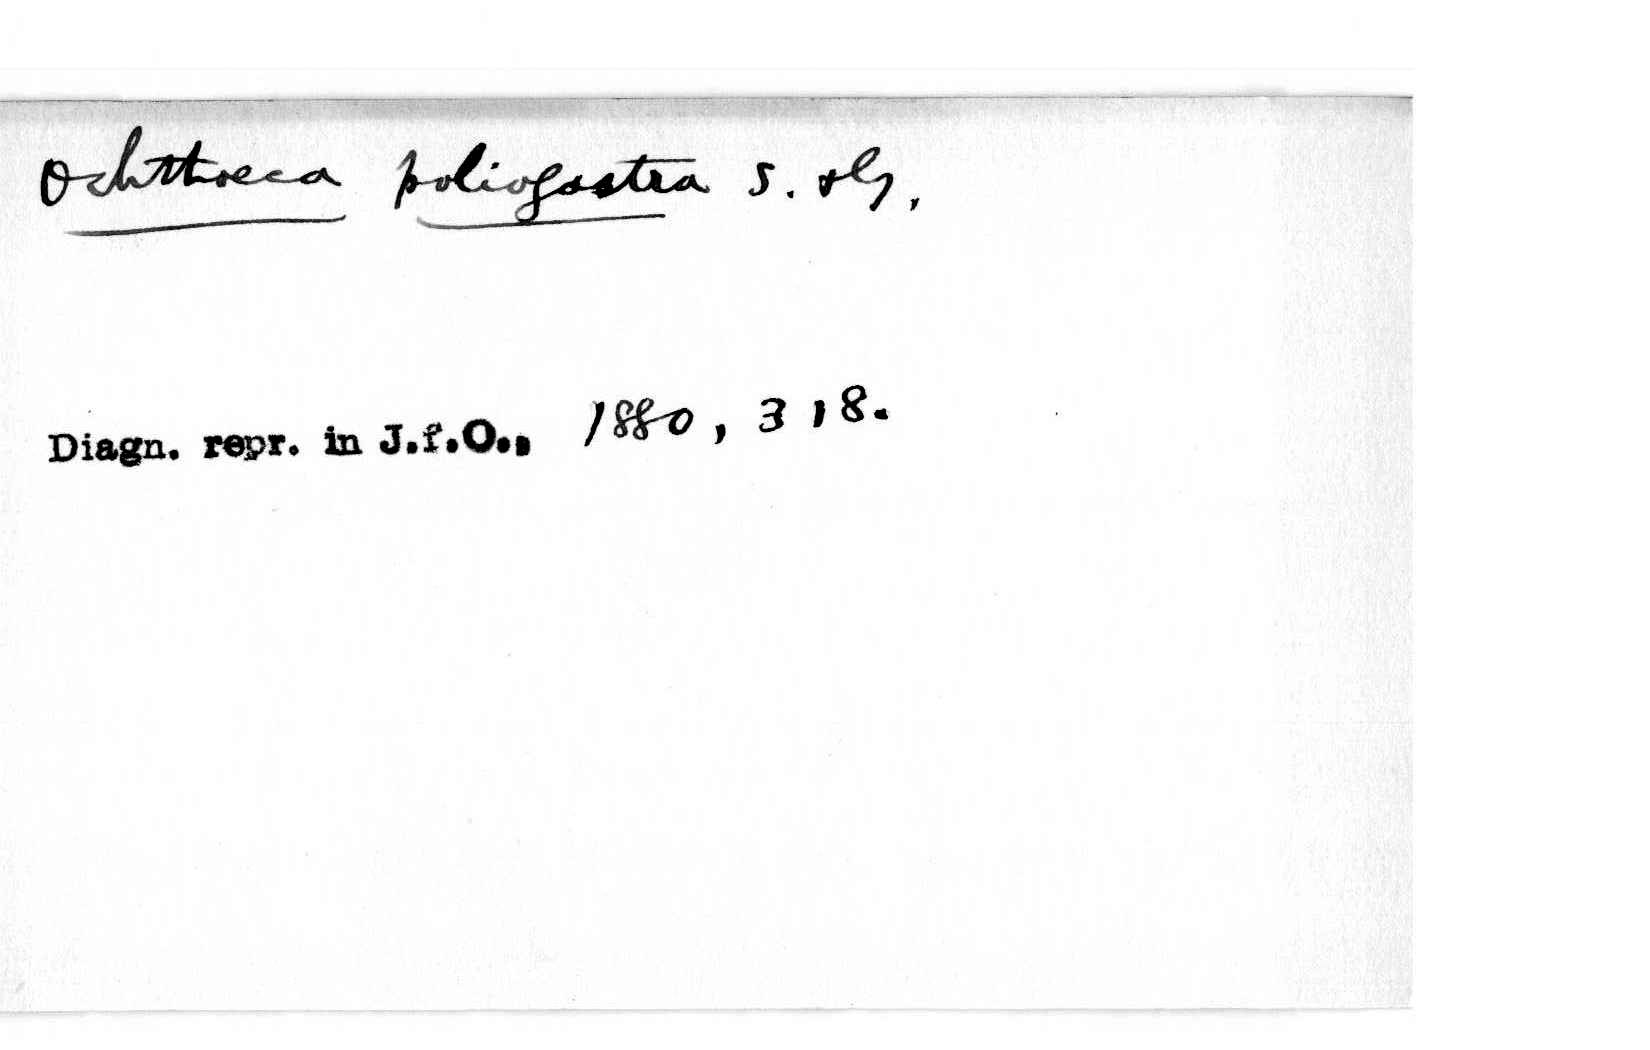 Ochthoeca poliogastra S. & G.
Diagn. repr. in J.f.O., 1880, 318.